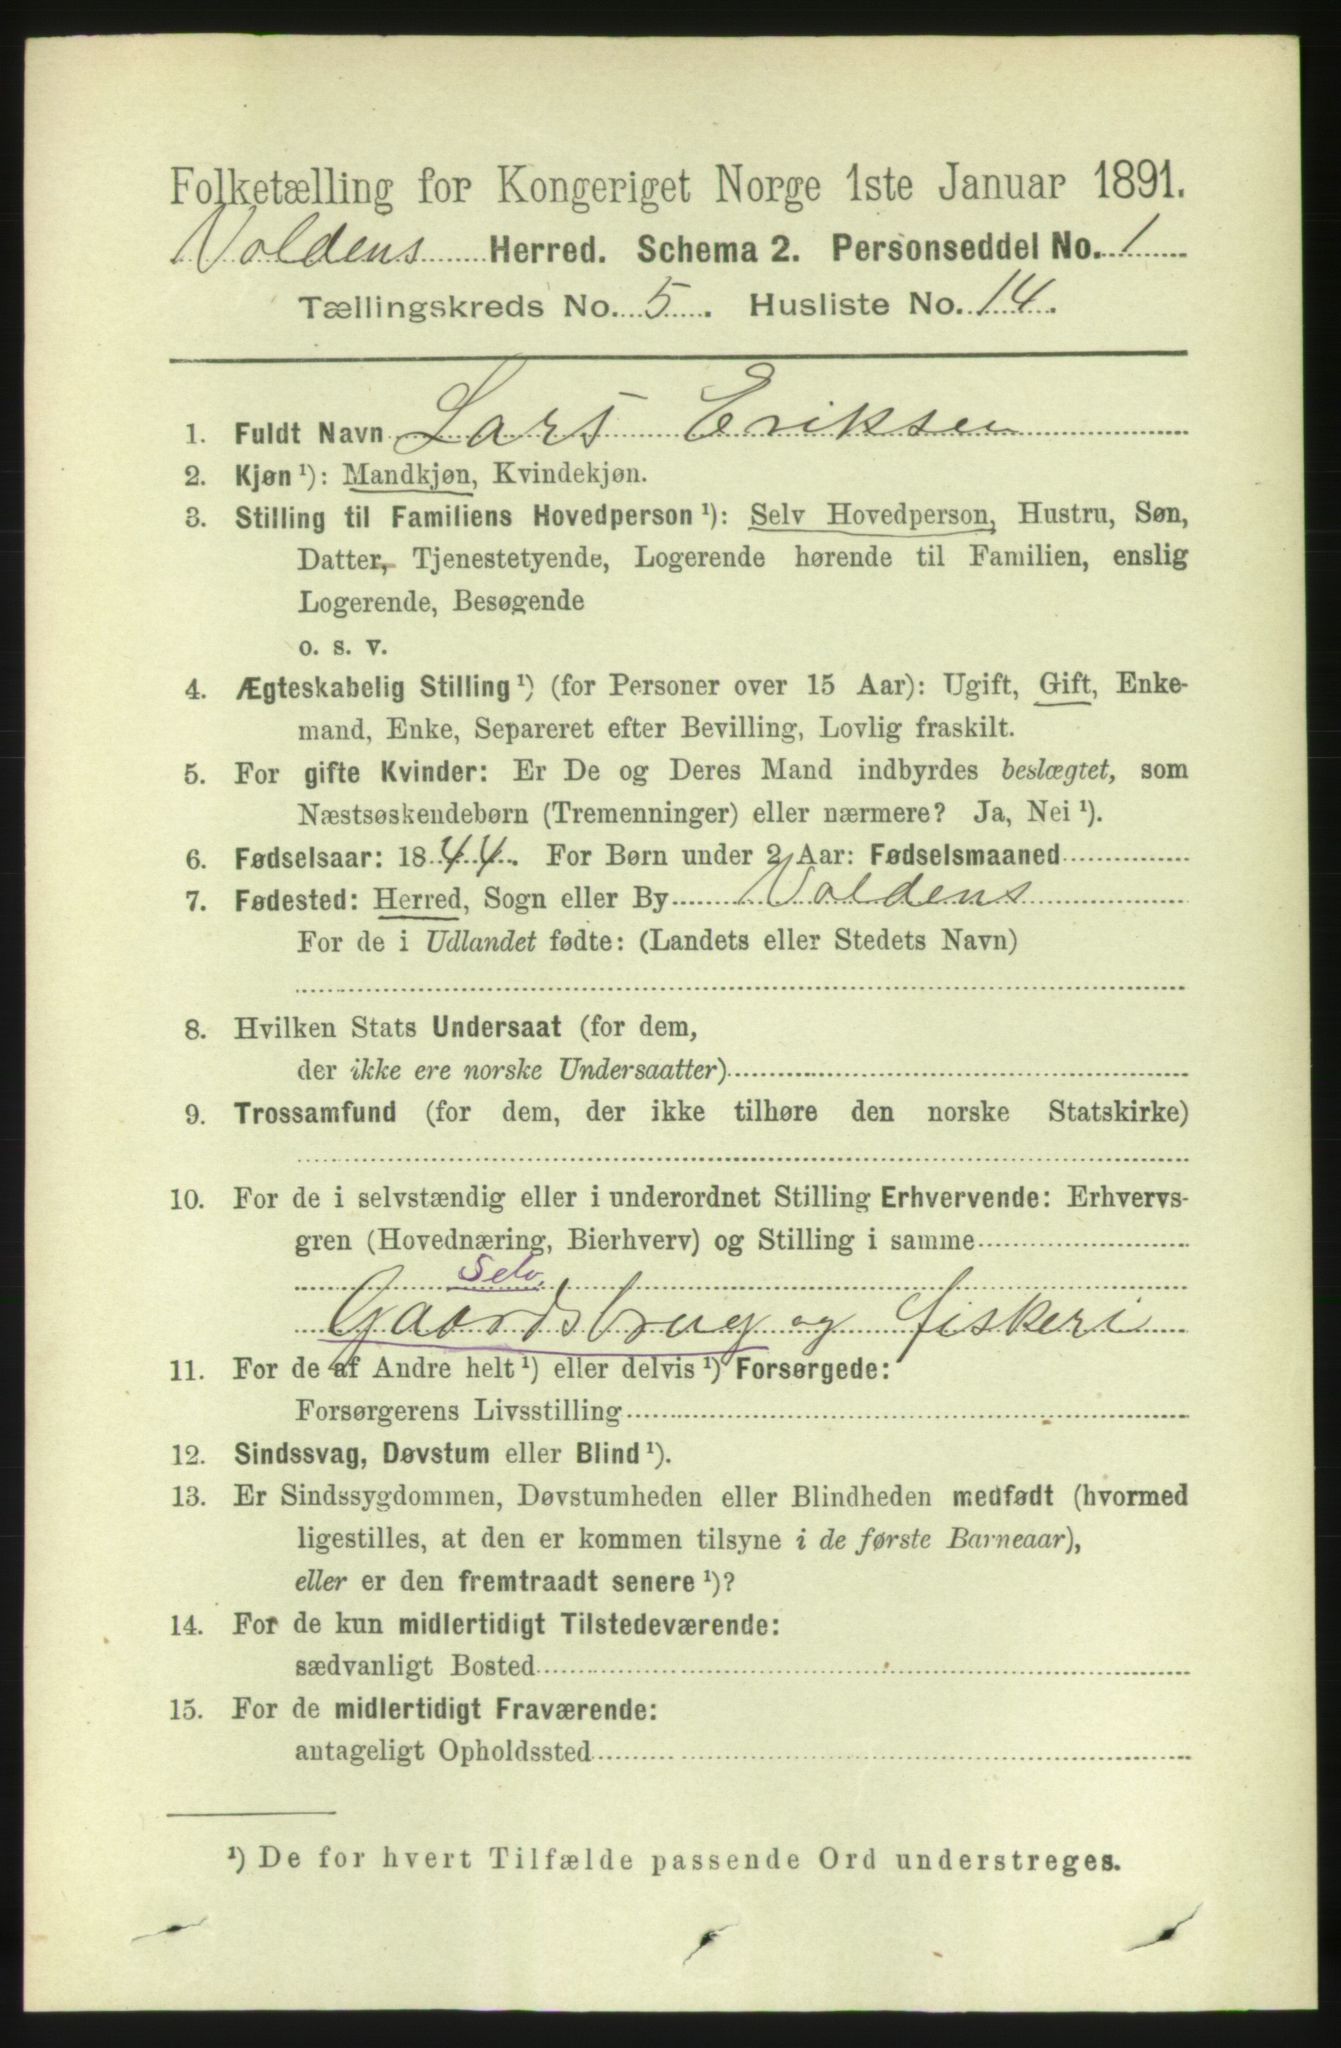 Folketælling for Kongeriget Norge 1ste Januar 1891.
Voldens Herred. Schema 2. Personseddel No. 1
Tællingskreds No. 5. Husliste No. 14.
1. Fuldt Navn Lars Eriksen
2. Kjøn ¹): Mandkjøn, Kvindekjøn.
3. Stilling til Familiens Hovedperson ¹): Selv Hovedperson, Hustru, Søn,
Datter, Tjenestetyende, Logerende hørende til Familien, enslig
Logerende, Besøgende
o. s. v.
4. Ægteskabelig Stilling ¹) (for Personer over 15 Aar): Ugift, Gift, Enke-
mand, Enke, Separeret efter Bevilling, Lovlig fraskilt.
5. For gifte Kvinder: Er De og Deres Mand indbyrdes beslægtet, som
Næstsøskendebørn (Tremenninger) eller nærmere? Ja, Nei ¹).
6. Fødselsaar: 1844. For Børn under 2 Aar: Fødselsmaaned
7. Fødested: Herred, Sogn eller By Voldens
For de i Udlandet fødte: (Landets eller Stedets Navn)
8. Hvilken Stats Undersaat (for dem,
der ikke ere norske Undersaatter)
9. Trossamfund (for dem, der ikke tilhøre den norske Statskirke)
10. For de i selvstændig eller i underordnet Stilling Erhvervende: Erhvervs-
gren (Hovednæring, Bierhverv) og Stilling i samme
Selv.
Gaardsbrug og fiskeri
11. For de af Andre helt ¹) eller delvis ¹) Forsørgede:
Forsørgerens Livsstilling
12. Sindssvag, Døvstum eller Blind ¹).
13. Er Sindssygdommen, Døvstumheden eller Blindheden medfødt (hvormed
ligestilles, at den er kommen tilsyne i de første Barneaar),
eller er den fremtraadt senere ¹)?
14. For de kun midlertidigt Tilstedeværende:
sædvanligt Bosted
15. For de midlertidigt Fraværende:
antageligt Opholdssted
¹) De for hvert Tilfælde passende Ord understreges.